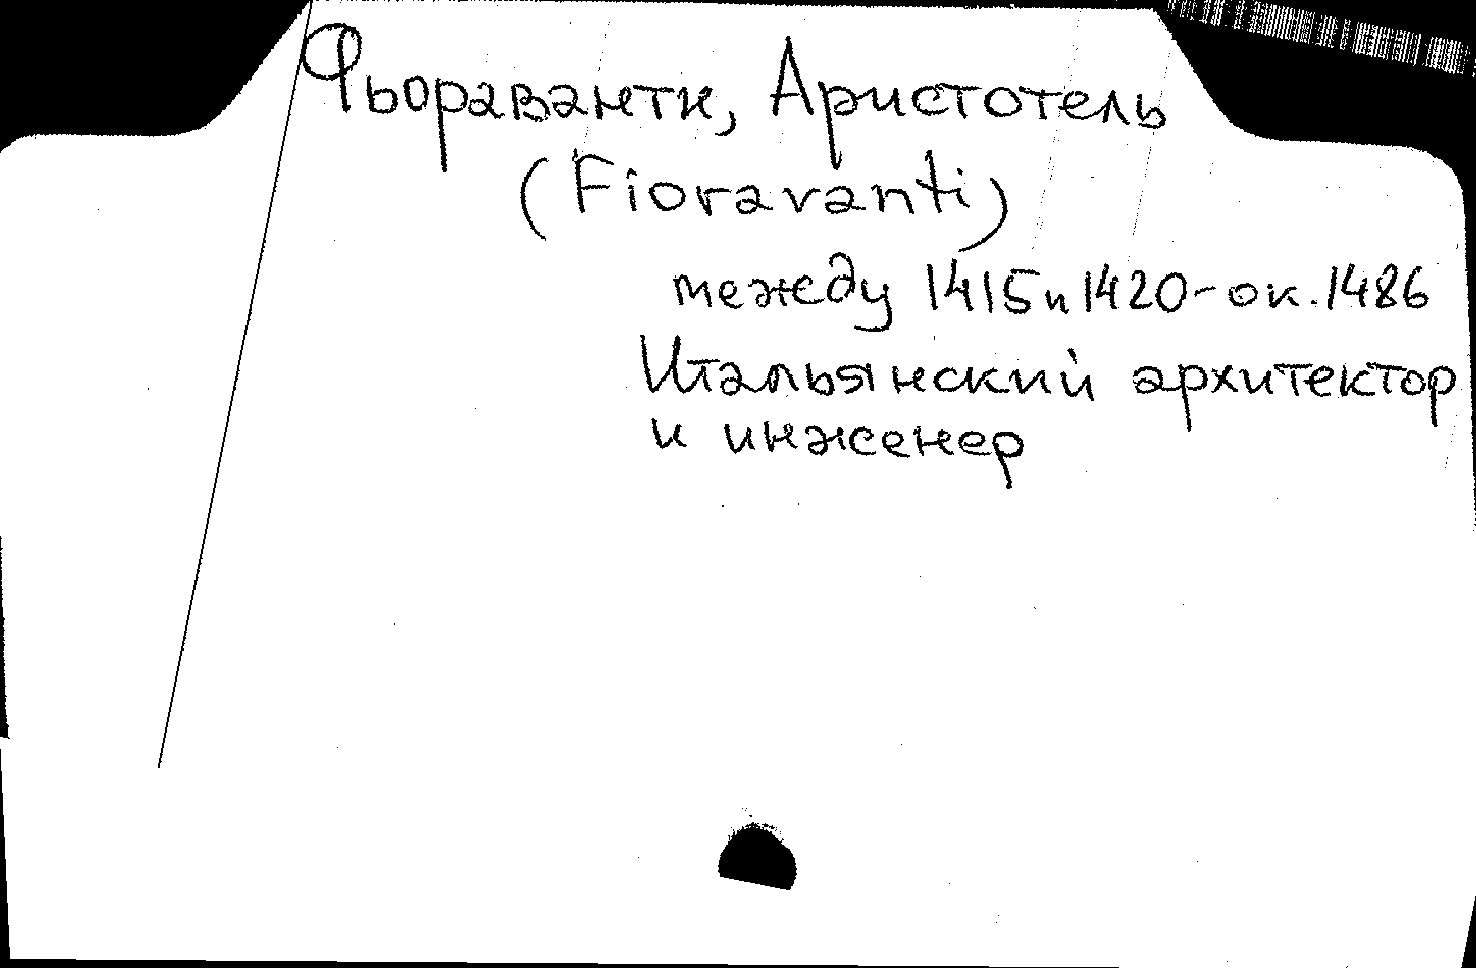 Фьораванти, Аристотель
(Fioravanti)
между 1415 и 1420 - ок. 1486
Итальянский архитектор
и инженер